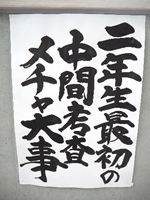 二年生最初の
中間考査
メチャ大事